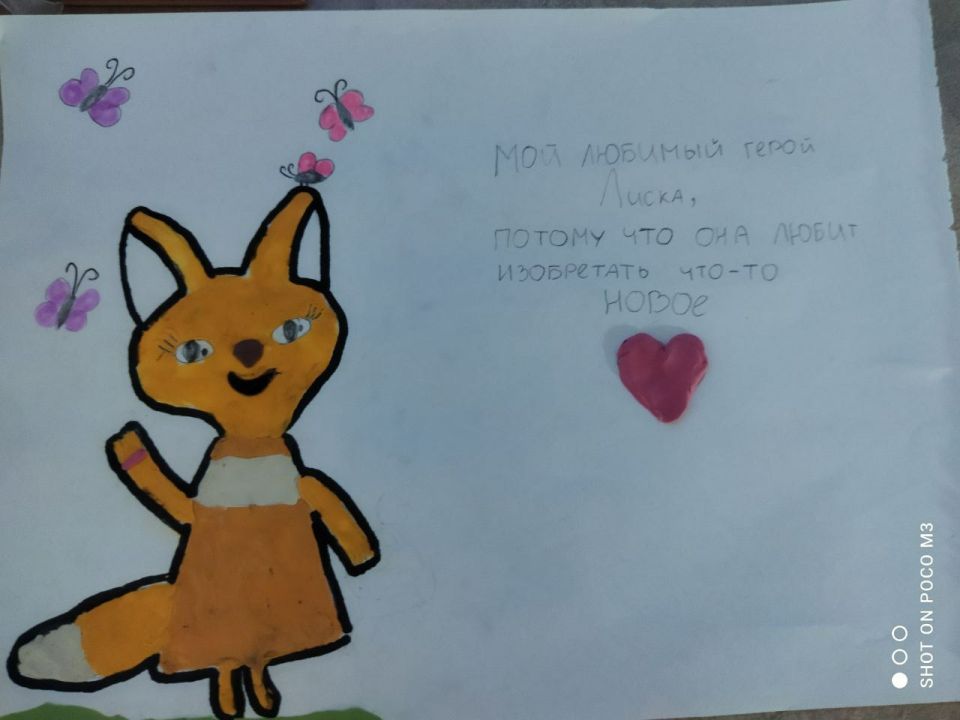 Мой любимый герой
Лиска,
потому что она любит
изобретать что-то
новое
SHOT ON POCO M3